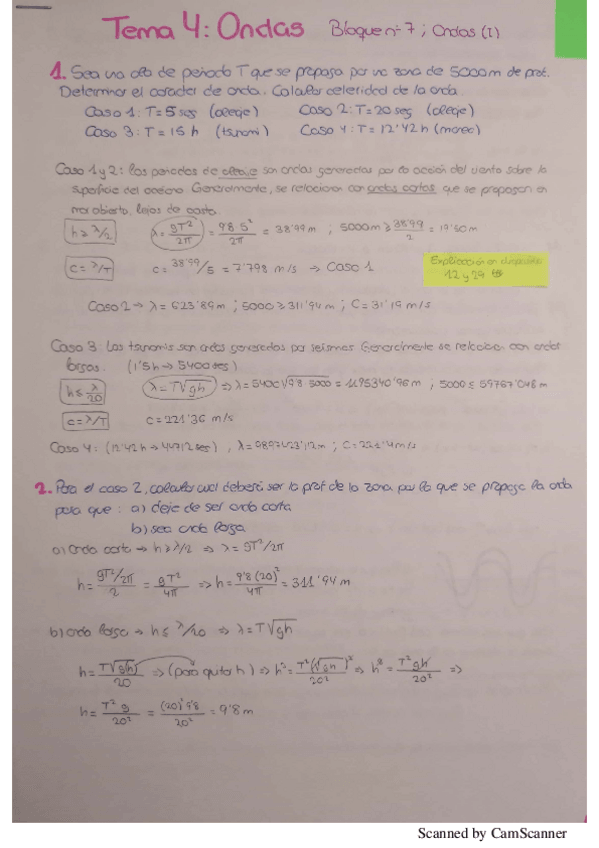 Tema 4: Ondas Bloque nº 7; Ondas (I)
1. Sea una ola de periodo T que se propaga por una zona de 5000m de prof.
Determinar el carácter de onda. Calcular celeridad de la onda.
Caso 1: T = 5 seg (oleaje) Caso 2: T = 20 seg (oleaje)
Caso 3: T = 1'5 h (tsunami) Caso 4: T = 12'42 h (marea)
Caso 1 y 2: Los periodos de oleaje son ondas generadas por la acción del viento sobre la
superficie del océano. Generalmente, se relacionan con ondas cortas que se propagan en
mar abierto, lejos de costa.
h ≥ λ/2 λ = gT²/2π = 9'8·5²/2π = 38'99 m ; 5000m ≥ 38'99/2 = 19'50 m
c = λ/T c = 38'99/5 = 7'798 m/s → Caso 1
Explicación en diapositiva
12 y 29
Caso 2 → λ = 623'89 m ; 5000 ≥ 311'94 m ; C = 31'19 m/s
Caso 3: Los tsunamis son ondas generadas por seísmos. Generalmente se relacionan con ondas
largas. (1'5h → 5400 seg)
h ≤ λ/20 λ = T√gh ⇒ λ = 5400√9'8·5000 = 1195340'96 m ; 5000 ≤ 59767'048 m
c = λ/T c = 221'36 m/s
Caso 4: (12'42h → 44712 seg) , λ = 9897423'12 m ; C = 221'4 m/s
2. Para el caso 2, calcular cuál deberá ser la prof. de la zona por la que se propaga la onda
para que: a) deje de ser onda corta
b) sea onda larga
a) Onda corta → h ≥ λ/2 ⇒ λ = gT²/2π
h = gT²/2π / 2 = gT²/4π ⇒ h = 9'8(20)²/4π = 311'94 m
b) onda larga → h ≤ λ/20 ⇒ λ = T√gh
h = T√gh/20 ⇒ (para quitar h) ⇒ h² = T²(√gh)²/20² ⇒ h² = T²gh/20² ⇒
h = T²g/20² = (20)²9'8/20² = 9'8 m
Scanned by CamScanner